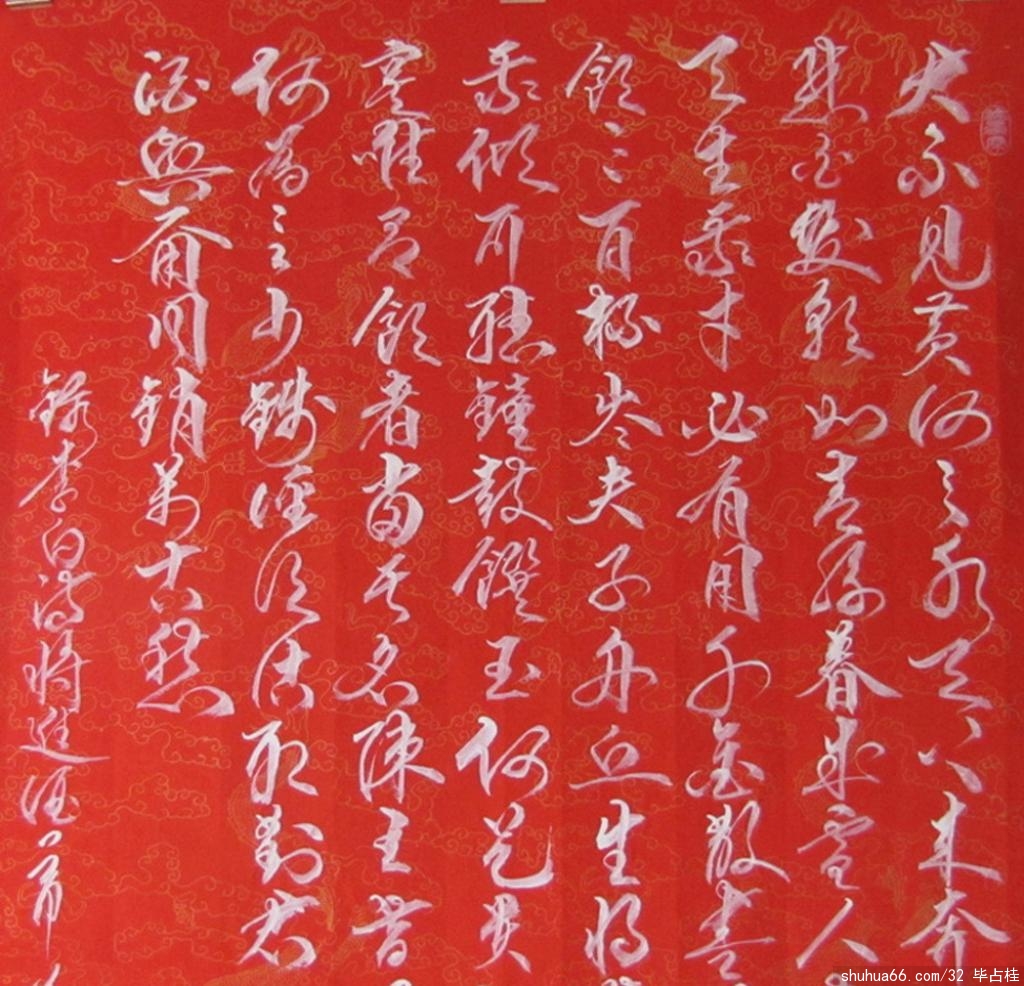 不見黃河之水天上來奔
悲白髮朝如青絲暮成雪人
天生我才必有用千金散盡
飲三百杯岑夫子丹丘生將
我傾耳聽鐘鼓饌玉何足貴
寞唯有飲者留其名陳王昔
何為言少錢徑須沽取對君
酒與爾同銷萬古愁
錄李白詩將進酒一首
shuhua66.com/32 毕占桂